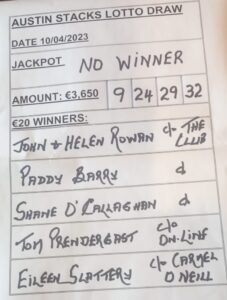 AUSTIN STACKS LOTTO DRAW
DATE 10/04/2023
JACKPOT NO WINNER
AMOUNT: €3,650 9 24 29 32
€20 WINNERS:
JOHN & HELEN ROWAN c/o THE CLUB
PADDY BARRY d
SHANE O'CALLAGHAN d
TOM PRENDERGAST c/o ON-LINE
EILEEN SLATTERY c/o CARMEL O NEILL